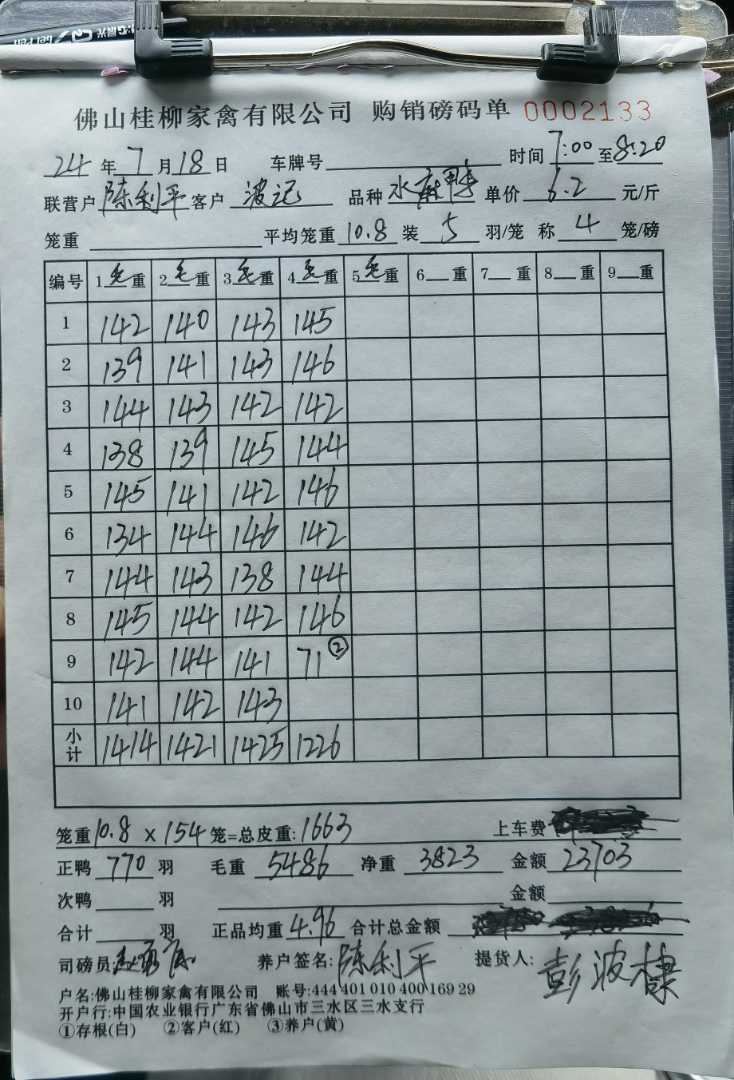 佛山桂柳家禽有限公司 购销磅码单 0002133
24年7月18日 车牌号 时间7:00至8:20
联营户陈利平客户波记 品种水麻鸭单价6.2元/斤
笼重 平均笼重10.8装5羽/笼 称4笼/磅
编号 1毛重 2毛重 3毛重 4毛重 5毛重 6重 7重 8重 9重
1 142 140 143 145
2 139 141 143 146
3 144 143 142 142
4 138 139 145 144
5 145 141 142 146
6 134 144 146 142
7 144 143 138 144
8 145 144 142 146
9 142 144 141 71②
10 141 142 143
小计 1414 1421 1425 1226
笼重10.8×154笼=总皮重:1663 上车费
正鸭770羽 毛重5486净重3823金额23703
次鸭 羽 金额
合计 羽 正品均重4.96合计总金额
司磅员 养户签名:陈利平 提货人:彭波棣
户名:佛山桂柳家禽有限公司 账号:444 401 010 400 169 29
开户行:中国农业银行广东省佛山市三水区三水支行
①存根(白) ②客户(红) ③养户(黄)